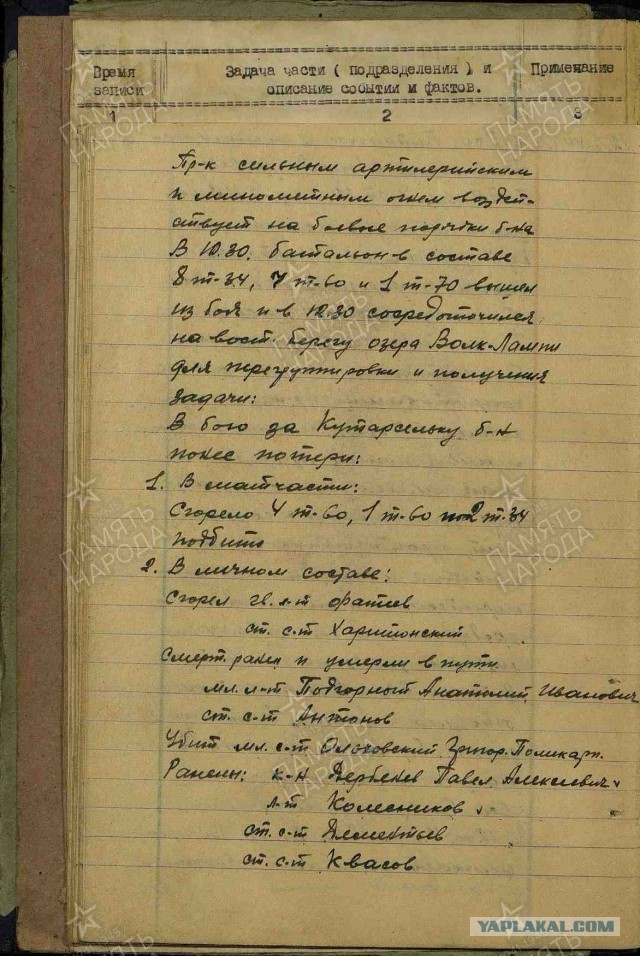 Время
записи
Задача части ( подразделения ) и
описание событий и фактов.
Примечание
1
2
3
Пр-к сильным артилерийским
и минометным огнем воздей-
ствует на боевые порядки б-на
В 10.30. батальон в составе
8 т-34, 7 т-60 и 1 т-70 вышел
из боя и в 12.30 сосредоточился
на вост. берегу озера Волк-Лампи
для перегруппировки и получения
задачи:
В бою за Кутарсельку б-н
понес потери:
1. В матчасти:
Сгорело 4 т-60, 1 т-60 2 т-34
подбито
2. В личном составе:
Сгорел гв. л-т Фатиев
ст. с-т Харитонский
Смерт. ранен и умерли в пути
мл. л-т Подгорный Анатолий Иванович
ст. с-т Антонов
Убит мл. с-т Ольховский Григор. Поликарп.
Ранены: к-н Дербенев Павел Алексеевич
л-т Колесников
ст. с-т Дементьев
ст. с-т Квасов
ПАМЯТЬ НАРОДА
YAPLAKAL.COM